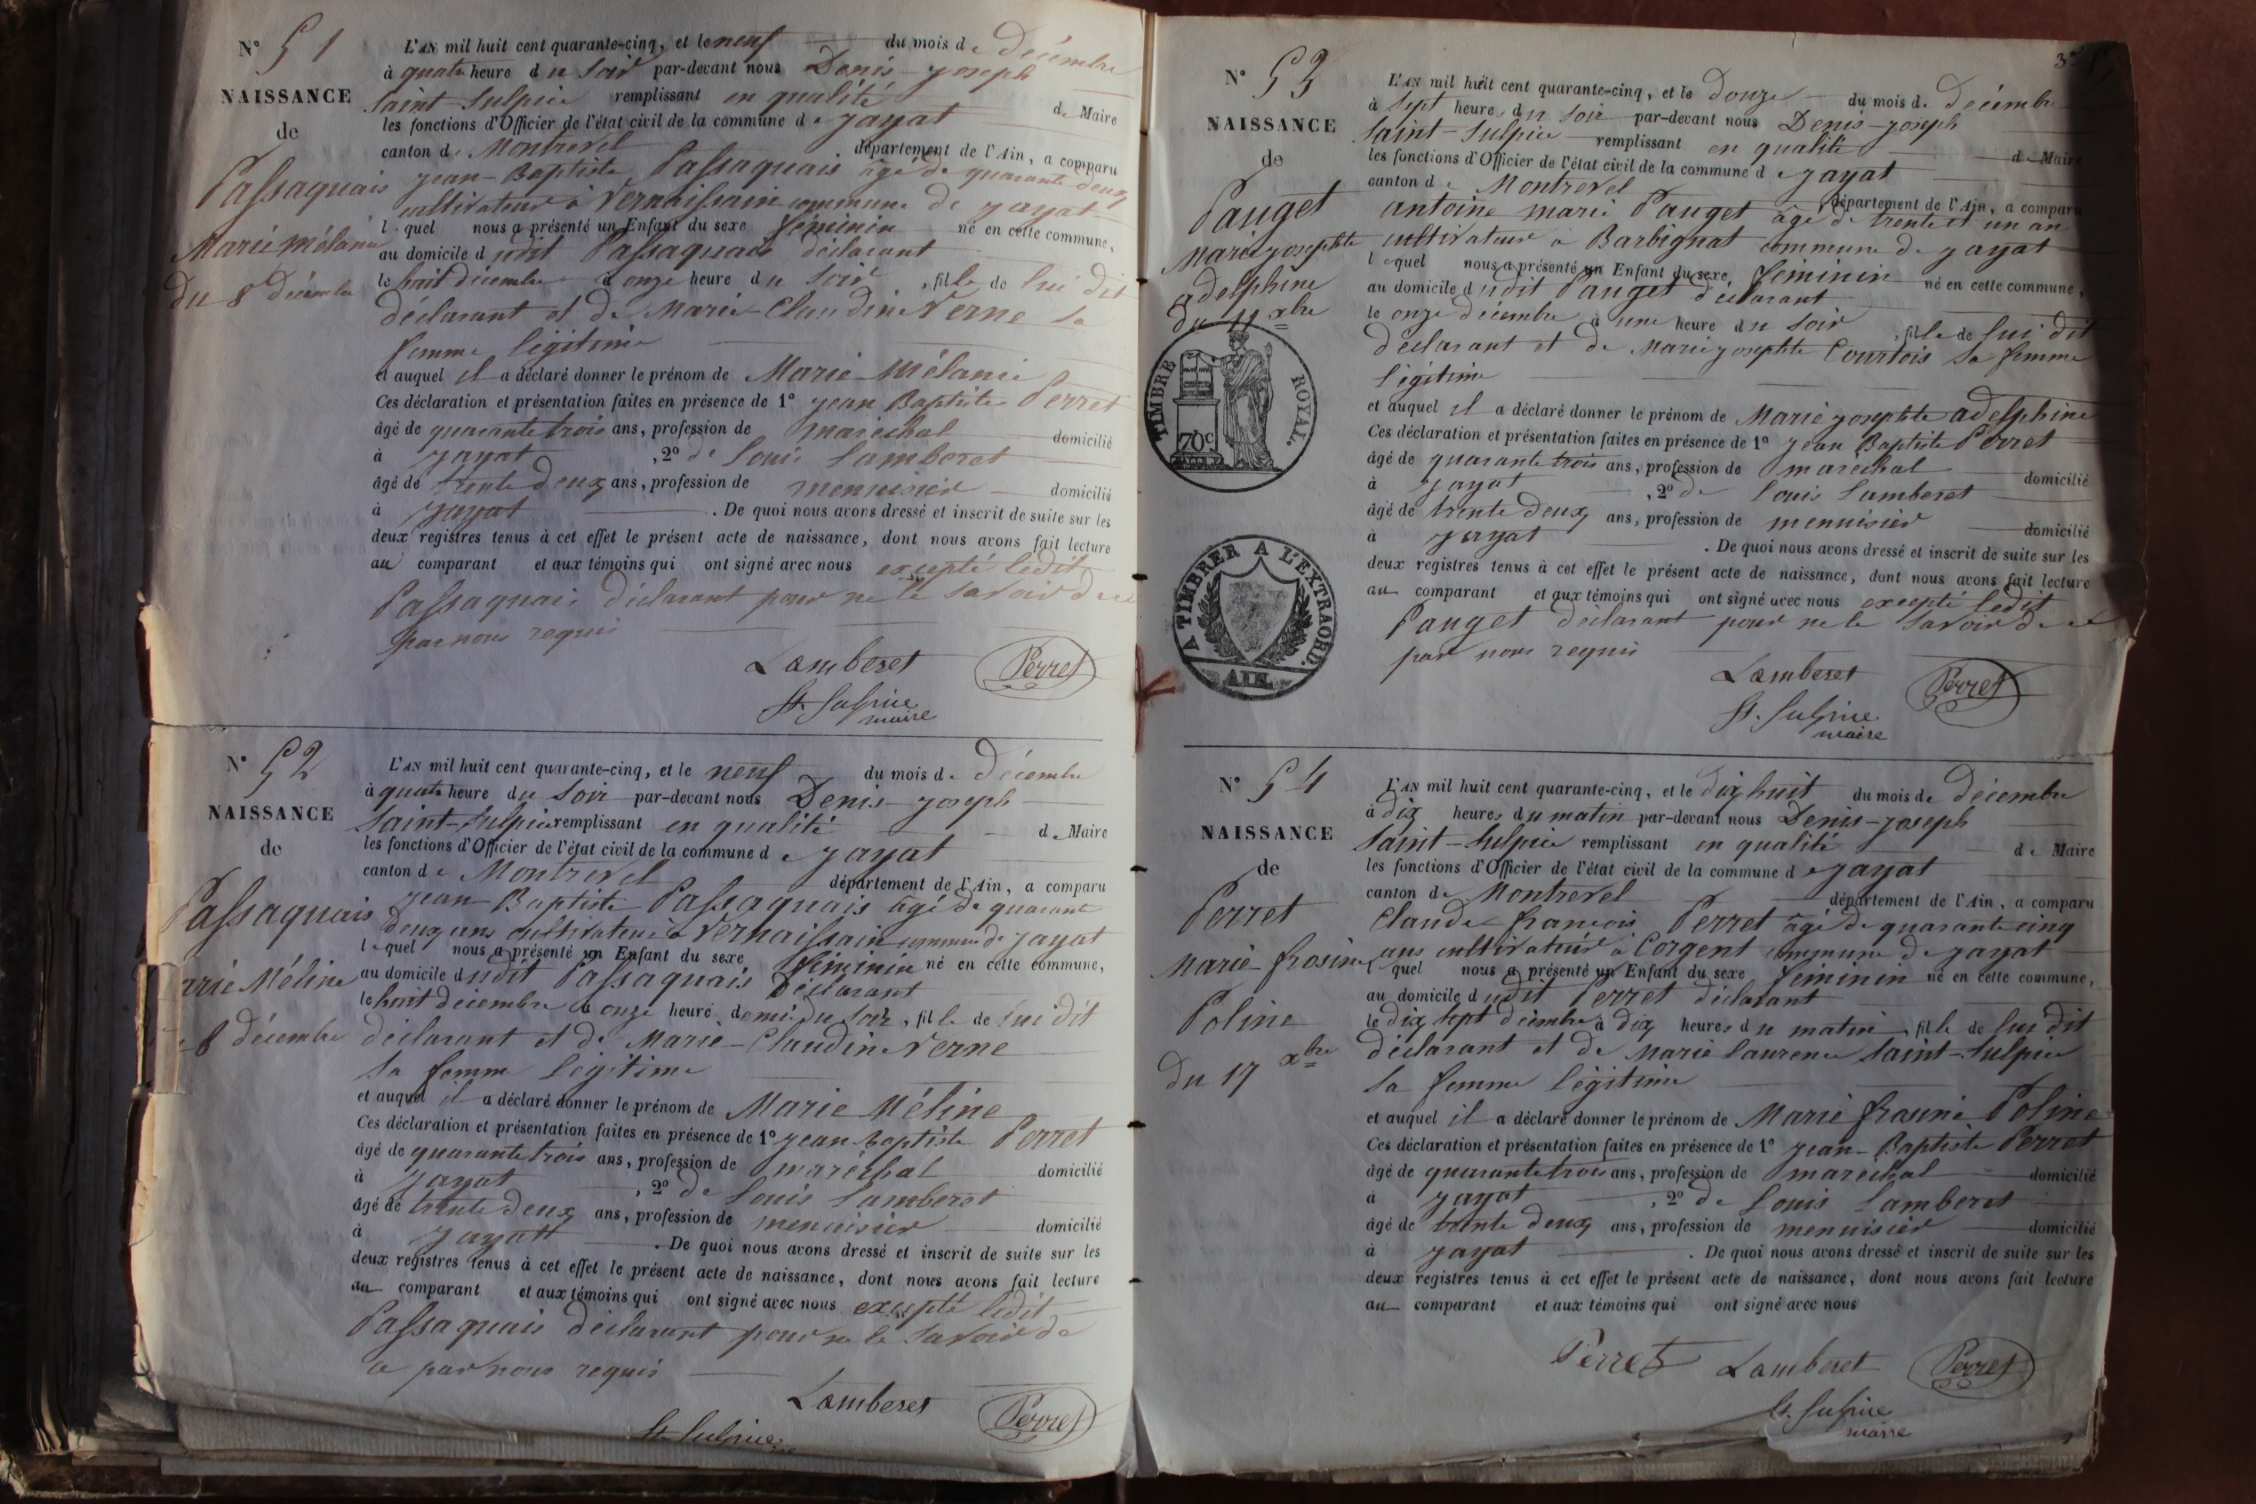 N° 51
NAISSANCE
de
Passaquais
Marie Mélanie
Du 8 Décembre
L'AN mil huit cent quarante-cinq, et le neuf du mois de Décembre
à quatre heure du Soir par-devant nous Denis-Joseph
Saint-Sulpice remplissant en qualité de Maire
les fonctions d'Officier de l'état civil de la commune de Jayat
canton de Montrevel département de l'Ain, a comparu
Jean-Baptiste Passaquais âgé de quarante deux
cultivateur à Vernaissain commune de Jayat
lequel nous a présenté un Enfant du sexe féminin né en cette commune,
au domicile dudit Passaquais déclarant
le huit décembre à onze heure du Soir, fille de lui dit
déclarant et de Marie-Claudine Verne sa
femme légitime
et auquel il a déclaré donner le prénom de Marie Mélanie
Ces déclaration et présentation faites en présence de 1° Jean Baptiste Perret
âgé de quarante trois ans, profession de maréchal domicilié
à Jayat, 2° de Louis Lamberet
âgé de trente deux ans, profession de menuisier domicilié
à Jayat. De quoi nous avons dressé et inscrit de suite sur les
deux registres tenus à cet effet le présent acte de naissance, dont nous avons fait lecture
au comparant et aux témoins qui ont signé avec nous excepté ledit
Passaquais déclarant pour ne le Savoir de ce
par nous requis
Lamberet Perret
St. Sulpice
maire
N° 52
NAISSANCE
de
Passaquais
Marie Méline
8 décembre
L'AN mil huit cent quarante-cinq, et le neuf du mois de Décembre
à quatre heure du Soir par-devant nous Denis-Joseph
Saint-Sulpice remplissant en qualité de Maire
les fonctions d'Officier de l'état civil de la commune de Jayat
canton de Montrevel département de l'Ain, a comparu
Jean-Baptiste Passaquais âgé de quarante
deux ans cultivateur à Vernaissain commune de Jayat
lequel nous a présenté un Enfant du sexe féminin né en cette commune,
au domicile dudit Passaquais Déclarant
le huit décembre à onze heure demie du Soir, fille de lui dit
déclarant et de Marie-Claudine Verne
sa femme légitime
et auquel il a déclaré donner le prénom de Marie Méline
Ces déclaration et présentation faites en présence de 1° Jean Baptiste Perret
âgé de quarante trois ans, profession de maréchal domicilié
à Jayat, 2° de Louis Lamberet
âgé de trente deux ans, profession de menuisier domicilié
à Jayat. De quoi nous avons dressé et inscrit de suite sur les
deux registres tenus à cet effet le présent acte de naissance, dont nous avons fait lecture
au comparant et aux témoins qui ont signé avec nous excepté ledit
Passaquais déclarant pour ne le Savoir de
ce par nous requis
Lamberet Perret
St. Sulpice
N° 53
NAISSANCE
de
Pauget
Marie Josephte
adelphine
Du 11 xbre
TIMBRE ROYAL.
70c
A TIMBRER A L'EXTRAORD.
AIN.
L'AN mil huit cent quarante-cinq, et le douze du mois de Décembre
à Sept heures du Soir par-devant nous Denis-Joseph
Saint-Sulpice remplissant en qualité de Maire
les fonctions d'Officier de l'état civil de la commune de Jayat
canton de Montrevel département de l'Ain, a comparu
antoine marie Pauget âgé de trente et un an
cultivateur à Barbignat commune de Jayat
lequel nous a présenté un Enfant du sexe féminin né en cette commune,
au domicile dudit Pauget déclarant
le onze décembre à une heure du Soir, fille de lui dit
déclarant et de Marie Josephte Courtois sa femme
légitime
et auquel il a déclaré donner le prénom de Marie Josephte adelphine
Ces déclaration et présentation faites en présence de 1° Jean Baptiste Perret
âgé de quarante trois ans, profession de maréchal domicilié
à Jayat, 2° de Louis Lamberet
âgé de trente deux ans, profession de menuisier domicilié
à Jayat. De quoi nous avons dressé et inscrit de suite sur les
deux registres tenus à cet effet le présent acte de naissance, dont nous avons fait lecture
au comparant et aux témoins qui ont signé avec nous excepté ledit
Pauget déclarant pour ne le Savoir de ce
par nous requis
Lamberet Perret
St. Sulpice
maire
N° 54
NAISSANCE
de
Perret
Marie-frosine
Poline
Du 17 xbre
L'AN mil huit cent quarante-cinq, et le dix huit du mois de Décembre
à dix heures du matin par-devant nous Denis-Joseph
Saint-Sulpice remplissant en qualité de Maire
les fonctions d'Officier de l'état civil de la commune de Jayat
canton de Montrevel département de l'Ain, a comparu
Claude françois Perret âgé de quarante cinq
ans cultivateur à Corgent commune de Jayat
lequel nous a présenté un Enfant du sexe féminin né en cette commune,
au domicile dudit Perret déclarant
le dix sept décembre à dix heures du matin, fille de lui dit
déclarant et de Marie laurence Saint-Sulpice
sa femme légitime
et auquel il a déclaré donner le prénom de Marie frosine Poline
Ces déclaration et présentation faites en présence de 1° Jean-Baptiste Perret
âgé de quarante trois ans, profession de maréchal domicilié
à Jayat, 2° de Louis Lamberet
âgé de trente deux ans, profession de menuisier domicilié
à Jayat. De quoi nous avons dressé et inscrit de suite sur les
deux registres tenus à cet effet le présent acte de naissance, dont nous avons fait lecture
au comparant et aux témoins qui ont signé avec nous
Perret Lamberet Perret
St. Sulpice
maire